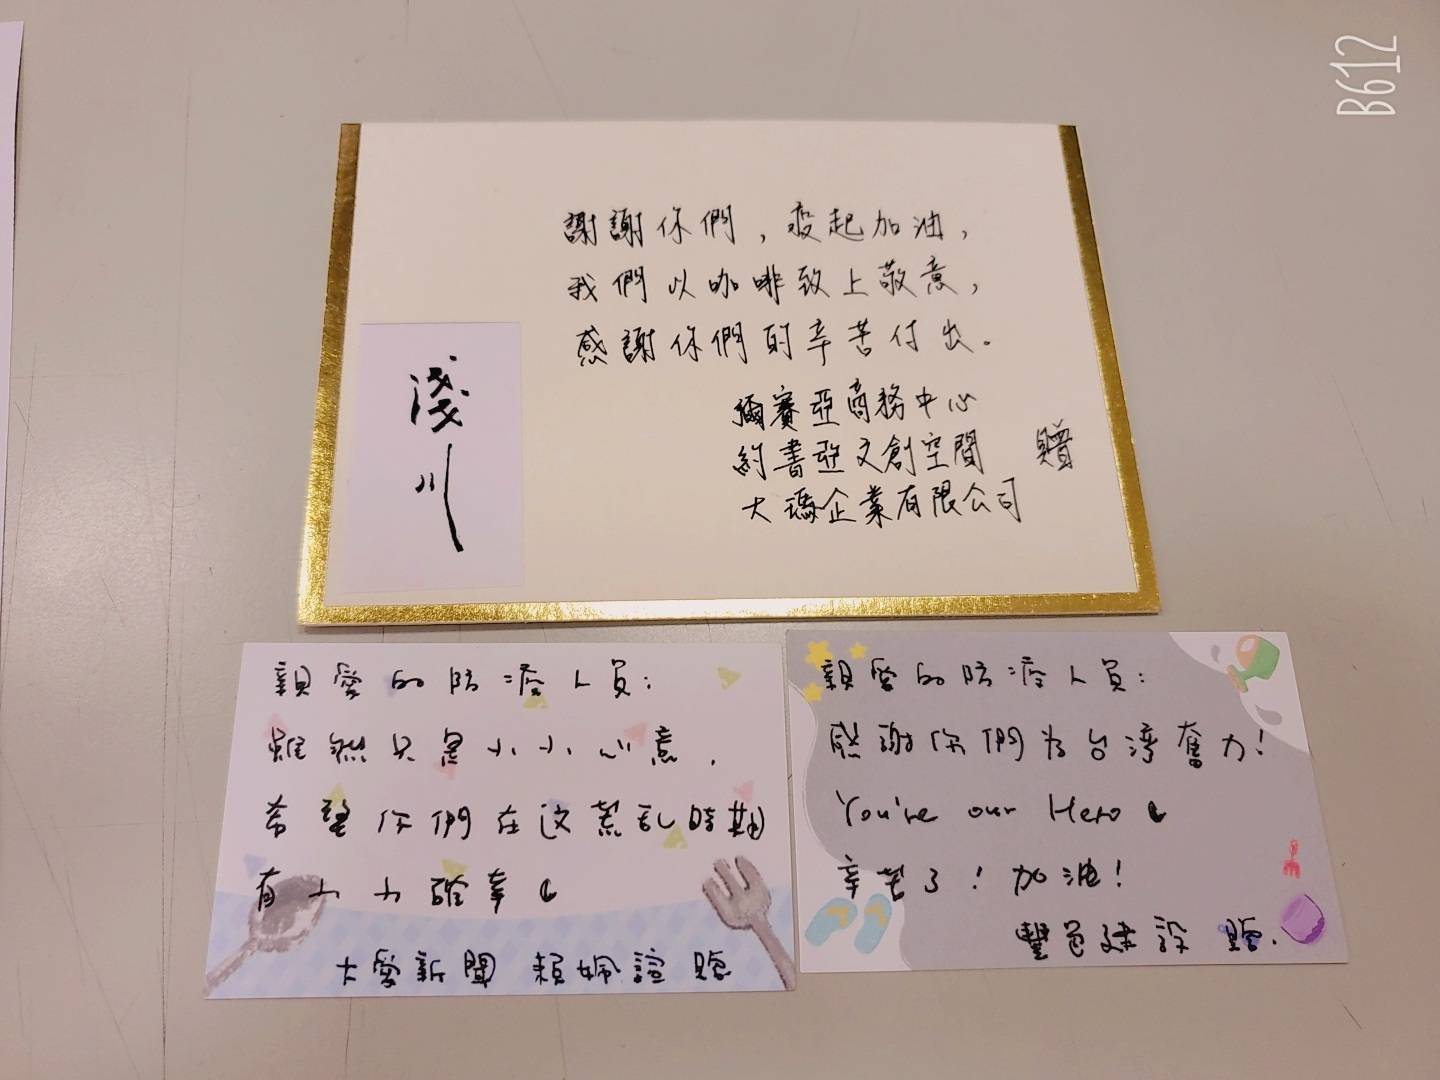 B612
謝謝你們，疫起加油，
我們以咖啡致上敬意，
感謝你們的辛苦付出。
彌賽亞商務中心
約書亞文創空間 贈
大瑪企業有限公司
淺川
親愛的防疫人員：
雖然只是小小心意，
希望你們在这荒乱時期
有小小確幸
大愛新聞 賴姵諠 贈
親愛的防疫人員：
感謝你們為台湾奮力！
You're our Hero
辛苦了！加油！
豐邑建設 贈.